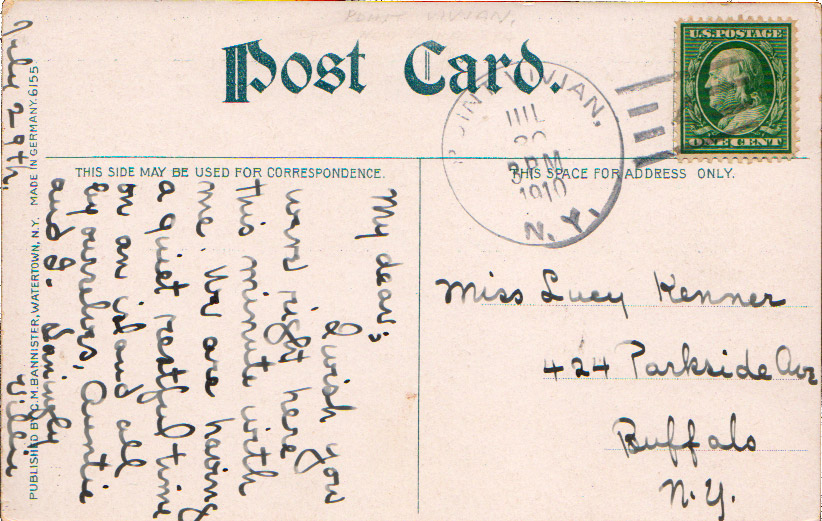 POINT VIVIAN.
Post Card.
U.S. POSTAGE
ONE CENT
POINT VIVIAN,
JUL
30
3 PM
1910
N.Y.
THIS SIDE MAY BE USED FOR CORRESPONDENCE.
THIS SPACE FOR ADDRESS ONLY.
July 29th.
My dear;
I wish you
were right here
this minute with
me. We are having
a quiet restful time
on an island all
by ourselves, Auntie
and I. Lovingly
PUBLISHED BY C.M. BANNISTER, WATERTOWN, N.Y. MADE IN GERMANY. 6155
Miss Lucy Kenner
424 Parkside Ave
Buffalo
N.Y.